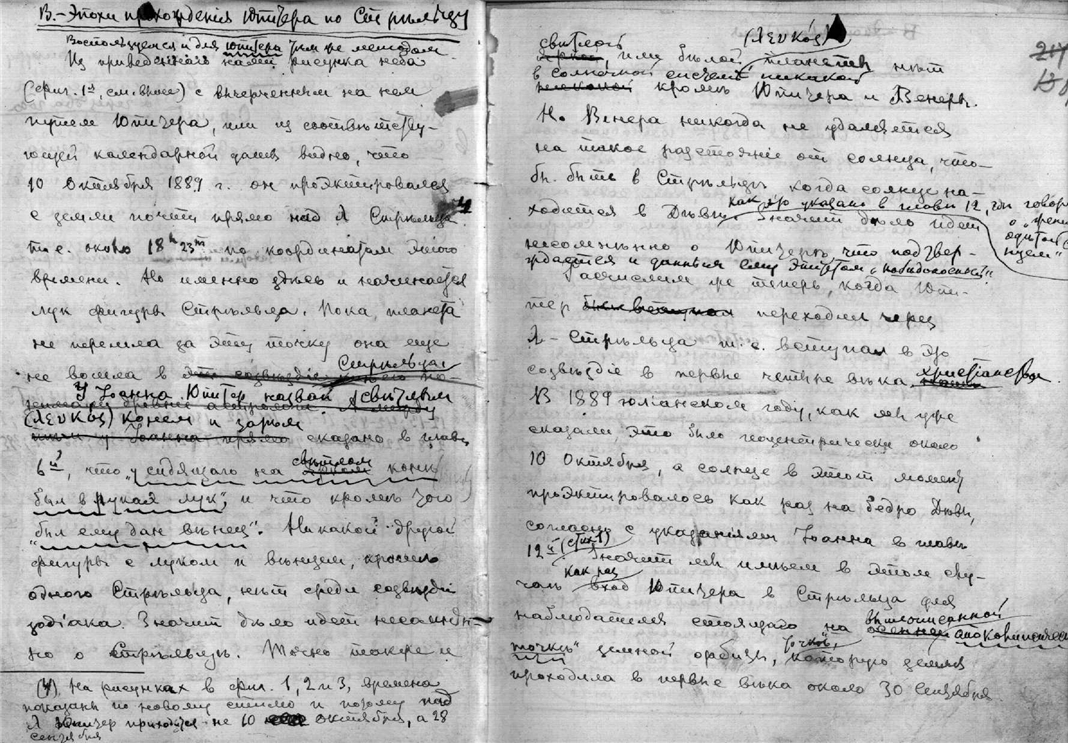 В.–Эпохи прохожденія Юпитера по Стрѣльцу
Воспользуемся и для Юпитера тѣм же методом
Из приведеннаго нами рисунка неба
(фиг. 1ая, см. выше) с вычерченным на нем
путем Юпитера, или из соотвѣтству-
ющей календарной даты видно, что
10 Октября 1889 г. он проэктировался
с земли почти прямо над λ Стрѣльца
т.е. около 18h 23m по координатам этого
времени. Но именно здѣсь и начинается
лук фигуры Стрѣльца. Пока планета
не перешла за эту точку она еще
не вошла в Стрѣльца.
У Іоанна Юпитер назван свѣтлым
(λευκός) конем и
сказано в главѣ
6й, что „у сидящаго на свѣтлом конѣ
был в руках лук", и что кромѣ того
„был ему дан вѣнец". Никакой другой
фигуры с луком и вѣнцом, кромѣ
одного Стрѣльца, нѣт среди созвѣздій
зодіака. Значит дѣло идет несомнѣн-
но о Стрѣльцѣ. Точно также и
(1) На рисунках в фиг. 1, 2 и 3, времена
показаны по новому стилю и потому над
λ Юпитер приходится не 10 октября, а 28
сентября
(λευκός)
свѣтлой, или бѣлой планеты нѣт
в солнечной системѣ никакой
кромѣ Юпитера и Венеры.
Но Венера никогда не удаляется
на такое разстояніе от солнца, что-
бы быть в Стрѣльцѣ, когда солнце на-
ходится в Дѣвѣ, как это указано в главѣ 12, гдѣ говорится
о
Значит дѣло идет
несомнѣнно о Юпитерѣ, что подтвер-
ждается и данным ему эпитетом „побѣдоносный".
Разчислим же теперь, когда Юпи-
тер переходил через
λ – Стрѣльца т.е. вступал в это
созвѣздіе в первые четыре вѣка христіанства.
В 1889 юліанском году, как мы уже
сказали, это было геоцентрически около
10 Октября, а солнце в этот момент
проэктировалось как раз на бедро Дѣвы,
согласно с указаніям Іоанна в главѣ
12й (стих 1)
Значит мы имѣем в этом слу-
чаѣ как раз вход Юпитера в Стрѣльца для
наблюдателя стоящаго на вышеочерченной
апокалиптической
точкѣ" земной орбиты, которую земля
проходила в первые вѣка около 30 Сентября